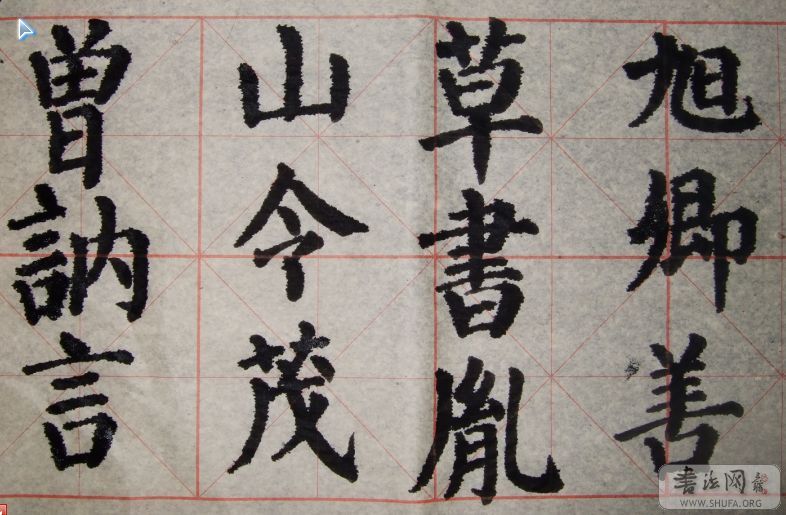 旭卿善
草書胤
山令茂
曾訥言
書法网
WWW.SHUFA.ORG